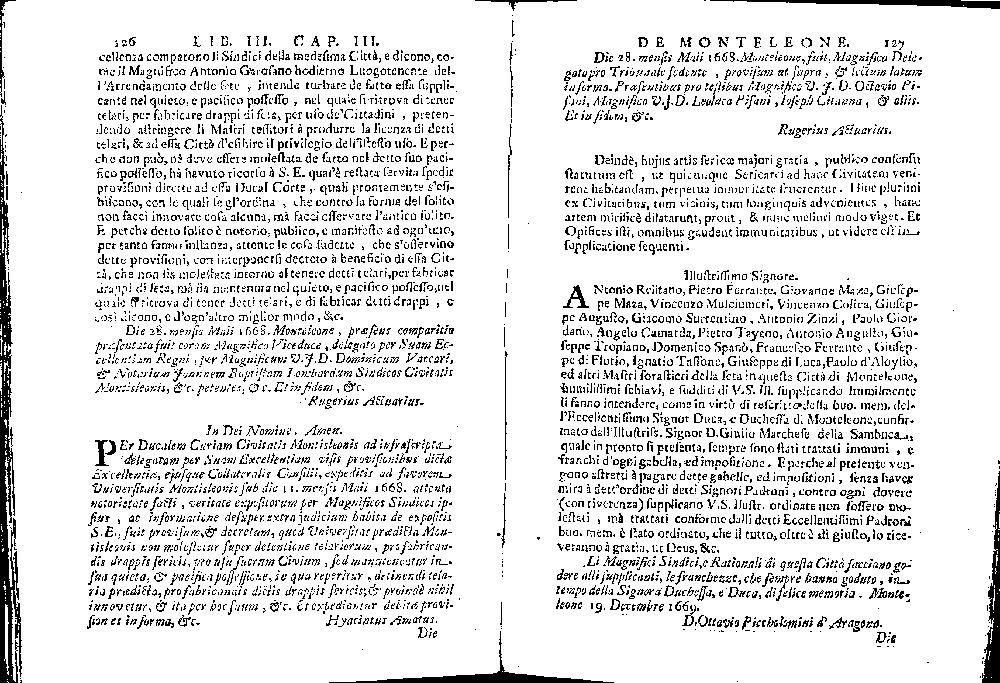 126 LIB. III. CAP. III.
cellenza comparono li Sindici della medesima Città, e dicono, co-
me il Magnifico Antonio Garofano hodierno Luogotenente del-
l'Arrendamento delle sete, intende turbare de fatto essa suppli-
cante nel quieto, e pacifico possesso, nel quale si ritrova di tener
telari, per fabricare drappi di seta, per uso de'Cittadini, preten-
dendo astringere li Mastri tessitori à produrre la licenza di detti
telari, & ad essa Città d'esibire il privilegio dell'istesso uso. E per-
che non può, nè deve essere molestata de fatto nel detto suo paci-
fico possesso, hà havuto ricorso à S. E. qual'è restata servita spedir
provisioni dirette ad essa Ducal Corte, quali prontamente s'esi-
biscono, con le quali se gl'ordina, che contro la forma del solito
non facci innovare cosa alcuna, mà facci osservare l'antico solito.
E perche detto solito è notorio, publico, e manifesto ad ogn'uno,
per tanto fanno instanza, attente le cose sudette, che s'osservino
dette provisioni, con interponersi decreto à beneficio di essa Cit-
tà, che non sia molestata intorno al tenere detti telari, per fabricar
drappi di seta, mà sia mantenuta nel quieto, e pacifico possesso, nel
quale si ritrova di tener detti telari, e di fabricar detti drappi, e
così dicono, e d'ogn'altro miglior modo, &c.
Die 28. mensis Maii 1668. Monteleone, præsens comparitio
præsentata fuit coram Magnifico Viceduce, delegato per Suam Ex-
cellentiam Regni, per Magnificum V.J.D. Dominicum Vaccari,
& Notarium Joannem Baptistam Lombardum Sindicos Civitatis
Montisleonis, &c. petentes, &c. Et in fidem, &c.
Rugerius Actuarius.
In Dei Nomine. Amen.
PEr Ducalem Curiam Civitatis Montisleonis ad infrascripta
delegatam per Suam Excellentiam visis provisionibus dictæ
Excellentiæ, ejusque Collateralis Consilii, expeditis ad favorem
Universitatis Montisleonis sub die 11. mensis Maii 1668. attenta
notorietate facti, veritate expositorum per Magnificos Sindicos ip-
sius, ac informatione desuper extrajudicium habita de expositis
S.E., fuit provisum, & decretum, quod Universitas prædicta Mon-
tisleonis non molestetur super detentione telariorum, pro fabrican-
dis drappis sericis, pro usu suorum Civium, sed manuteneatur in
sua quieta, & pacifica possessione, in qua reperitur, detinendi tela-
ria prædicta, pro fabricandis dictis drappis sericis, & proinde nihil
innovetur, & ita per hoc suum, &c. Et expediantur debitæ provi-
sion et in forma, &c. Hyacintus Amatus.
Die
DE MONTELEONE. 127
Die 28. mensis Maii 1668. Monteleone, fuit, Magnifico Dele-
gato pro Tribunale sedente, provisum ut supra, & lectum latum
in forma. Præsentibus pro testibus Magnifico V. J. D. Octavio Pi-
sani, Magnifico V.J.D. Leoluca Pisani, Joseph Citanna, & aliis.
Et in fidem, &c.
Rugerius Actuarius.
Deindè, hujus artis sericæ majori gratia, publico consensu
statutum est, ut quicunque Sericarei ad hanc Civitatem veni-
rent habitandam, perpetua immunitate fruerentur. Hinc plurimi
ex Civitatibus, tum vicinis, tum longinquis advenientes, hanc
artem mirificè dilatarunt, prout, & nunc meliori modo viget. Et
Opifices isti, omnibus gaudent immunitatibus, ut videre est in
supplicatione sequenti.
Illustrissimo Signore.
ANtonio Relitano, Pietro Ferrante, Giovanne Maza, Giusep-
pe Maza, Vincenzo Mulciumeri, Vincenzo Colica, Giusep-
pe Augusto, Giacomo Surrentino, Antonio Zinzi, Paolo Gior-
dano, Angelo Camarda, Pietro Tayeno, Antonio Augusto, Giu-
seppe Tropiano, Domenico Spanò, Francesco Ferrante, Giusep-
pe di Flurio, Ignatio Tassone, Giuseppe di Luca, Paolo d'Aloysio,
ed altri Mastri forastieri della seta in questa Città di Monteleone,
humilissimi schiavi, e sudditi di V.S. Ill. supplicando humilmente
li fanno intendere, come in virtù di rescritto della buo. mem. del-
l'Eccellentissimo Signor Duca, e Duchessa di Monteleone, confir-
mato dall'Illustriss. Signor D. Giulio Marchese della Sambuca,
quale in pronto si presenta, sempre sono stati trattati immuni, e
franchi d'ogni gabella, ed impositione. E perche al presente ven-
gono astretti à pagare dette gabelle, ed impositioni, senza haver
mira à dett'ordine di detti Signori Padroni, contro ogni dovere
(con riverenza) supplicano V.S. Illustr. ordinare non fossero mo-
lestati, mà trattati conforme dalli detti Eccellentissimi Padroni
buo. mem. è stato ordinato, che il tutto, oltre è di giusto, lo rice-
veranno à gratia, ut Deus, &c.
Li Magnifici Sindici, e Rationali di questa Città facciano go-
dere alli supplicanti, le franchezze, che sempre hanno goduto, in
tempo della Signora Duchessa, e Duca, di felice memoria. Monte-
leone 19. Decembre 1669.
D. Ottavio Piccholomini d'Aragona.
Die